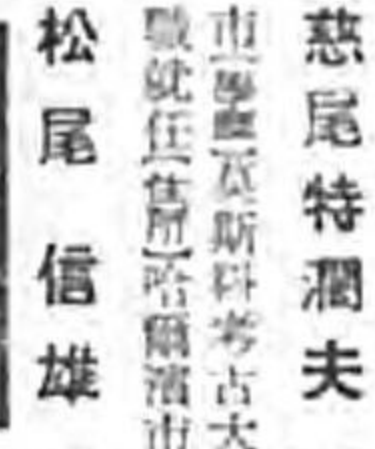 慈尾特潤夫
市【學歷】瓦斯科考古大
職就任【住所】哈爾濱市
松尾信雄